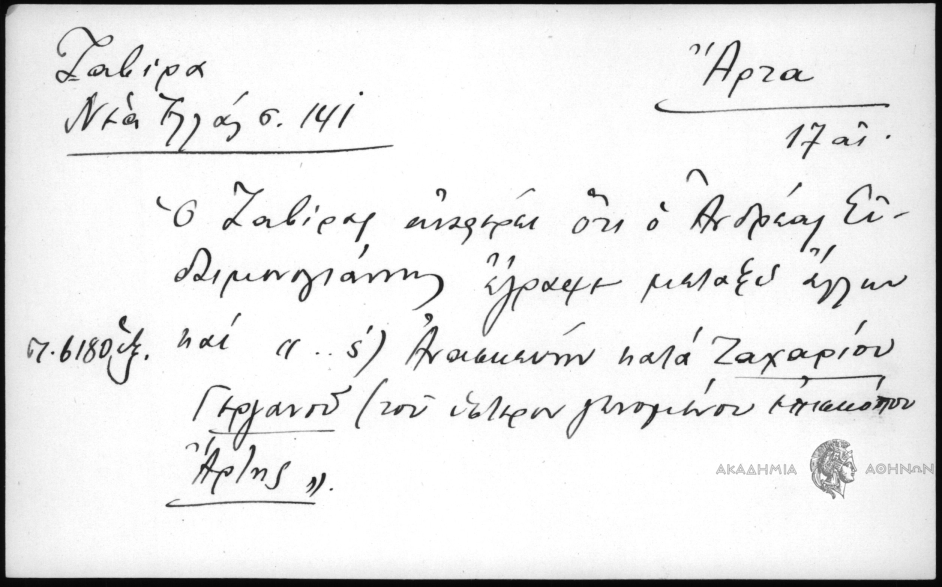 Ζαβίρα
Νέα Ἑλλάς σ. 141
Ἄρτα
17 αἰ.
Ὁ Ζαβίρας ἀναφέρει ὅτι ὁ Ἀνδρέας Εὐ-
δαιμονογιάννης ἔγραψε μεταξύ ἄλλων
καί " .. ς) Ἀνασκευήν κατά Ζαχαρίου
Γεργανοῦ (τοῦ ὕστερον γενομένου ἐπισκόπου
Ἄρτης ".
6180
ΑΚΑΔΗΜΙΑ ΑΘΗΝΩΝ